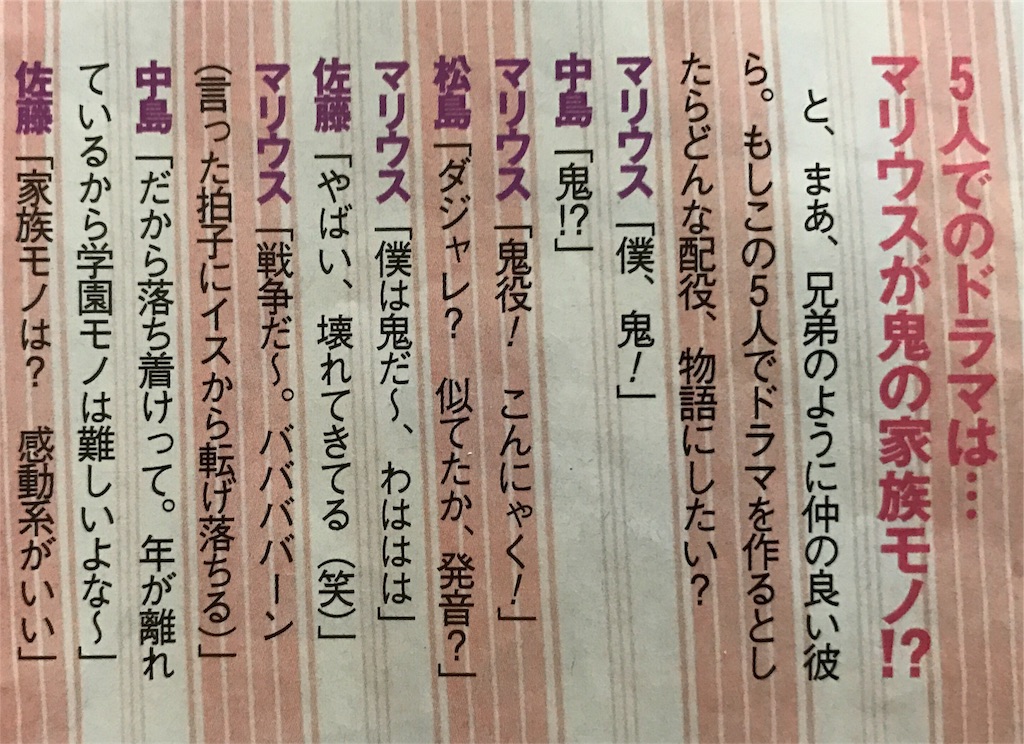 5人でのドラマは…
マリウスが鬼の家族モノ!?
と、まあ、兄弟のように仲の良い彼
ら。もしこの5人でドラマを作るとし
たらどんな配役、物語にしたい？
マリウス「僕、鬼！」
中島「鬼!?」
マリウス「鬼役！　こんにゃく！」
松島「ダジャレ？　似てたか、発音？」
マリウス「僕は鬼だ～、わははは」
佐藤「やばい、壊れてきてる（笑）」
マリウス「戦争だ～。ババババーン
（言った拍子にイスから転げ落ちる）」
中島「だから落ち着けって。年が離れ
ているから学園モノは難しいよな～」
佐藤「家族モノは？　感動系がいい」